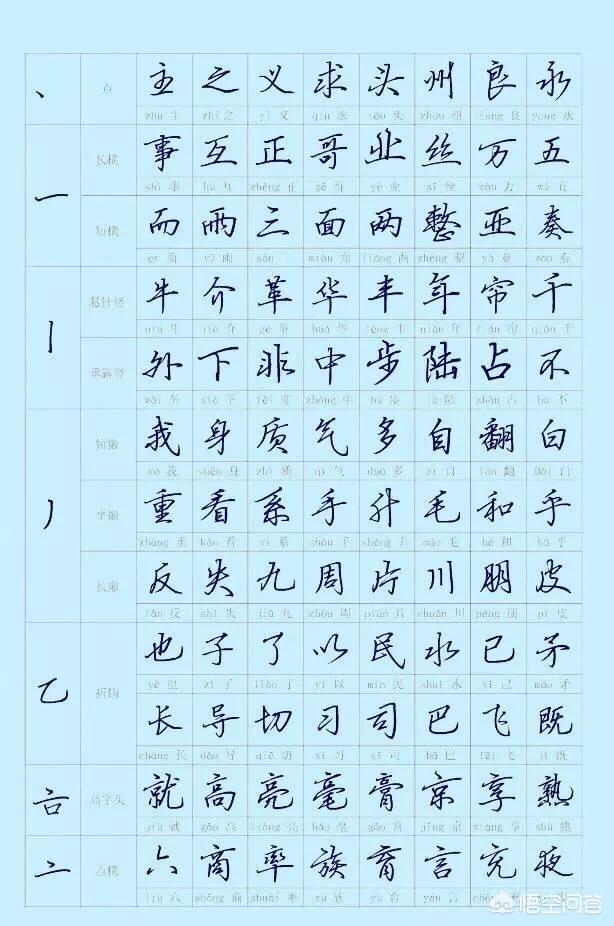 、 点 主 之 义 求 头 州 良 永
zhǔ 主 zhī 之 yì 义 qiú 求 tóu 头 zhōu 州 liáng 良 yǒng 永
一 长横 事 互 正 哥 业 丝 万 五
shì 事 hù 互 zhèng 正 gē 哥 yè 业 sī 丝 wàn 万 wǔ 五
短横 而 雨 三 面 两 整 亚 奏
ér 而 yǔ 雨 sān 三 miàn 面 liǎng 两 zhěng 整 yà 亚 zòu 奏
丨 悬针竖 牛 介 革 华 丰 年 帘 千
niú 牛 jiè 介 gé 革 huá 华 fēng 丰 nián 年 lián 帘 qiān 千
垂露竖 外 下 非 中 步 陆 占 不
wài 外 xià 下 fēi 非 zhōng 中 bù 步 lù 陆 zhàn 占 bù 不
丿 短撇 我 身 质 气 多 自 翻 白
wǒ 我 shēn 身 zhì 质 qì 气 duō 多 zì 自 fān 翻 bái 白
平撇 重 看 系 手 升 毛 和 乎
zhòng 重 kàn 看 xì 系 shǒu 手 shēng 升 máo 毛 hé 和 hū 乎
长撇 反 失 九 周 片 川 朋 皮
fǎn 反 shī 失 jiǔ 九 zhōu 周 piàn 片 chuān 川 péng 朋 pí 皮
乙 折钩 也 子 了 以 民 水 已 矛
yě 也 zǐ 子 liǎo 了 yǐ 以 mín 民 shuǐ 水 yǐ 已 máo 矛
长 导 切 习 司 巴 飞 既
cháng 长 dǎo 导 qiē 切 xí 习 sī 司 bā 巴 fēi 飞 jì 既
高字头 就 高 亮 毫 膏 京 享 熟
jiù 就 gāo 高 liàng 亮 háo 毫 gāo 膏 jīng 京 xiǎng 享 shú 熟
亠 点横 六 商 率 族 育 言 充 夜
liù 六 shāng 商 shuài 率 zú 族 yù 育 yán 言
悟空问答